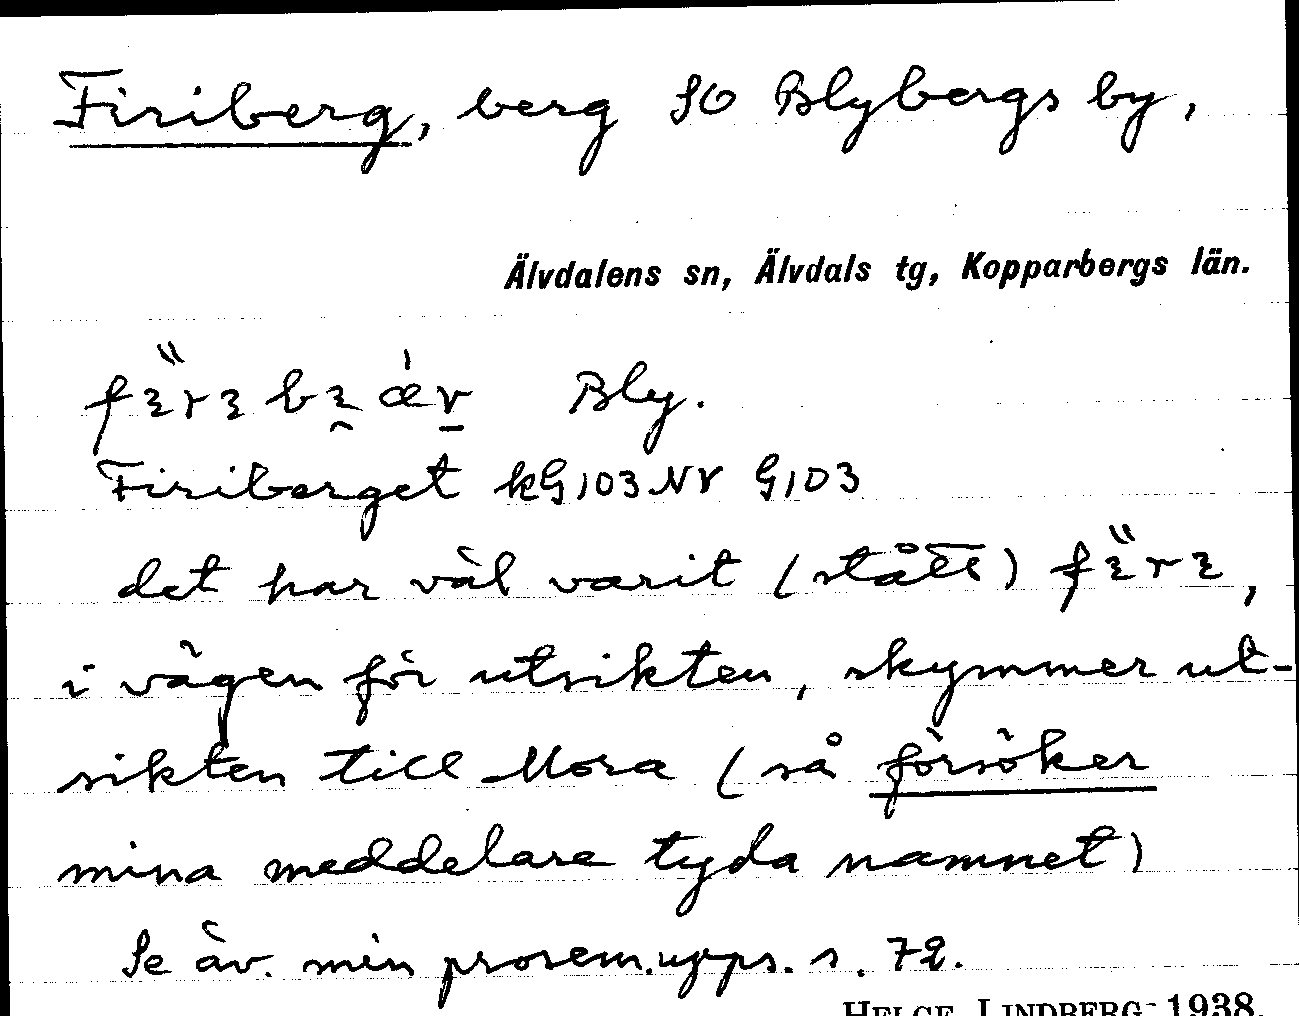 Firiberg, berg SO Blybergs by,
Älvdalens sn, Älvdals tg, Kopparbergs län.
Bly.
Firiberget kG103NV G103
det har väl varit (stått)
i vägen för utsikten, skymmer ut-
sikten till Mora (så försöker
mina meddelare tyda namnet)
Se äv. min prosem.upps. s. 72.
HELGE LINDBERG 1938.